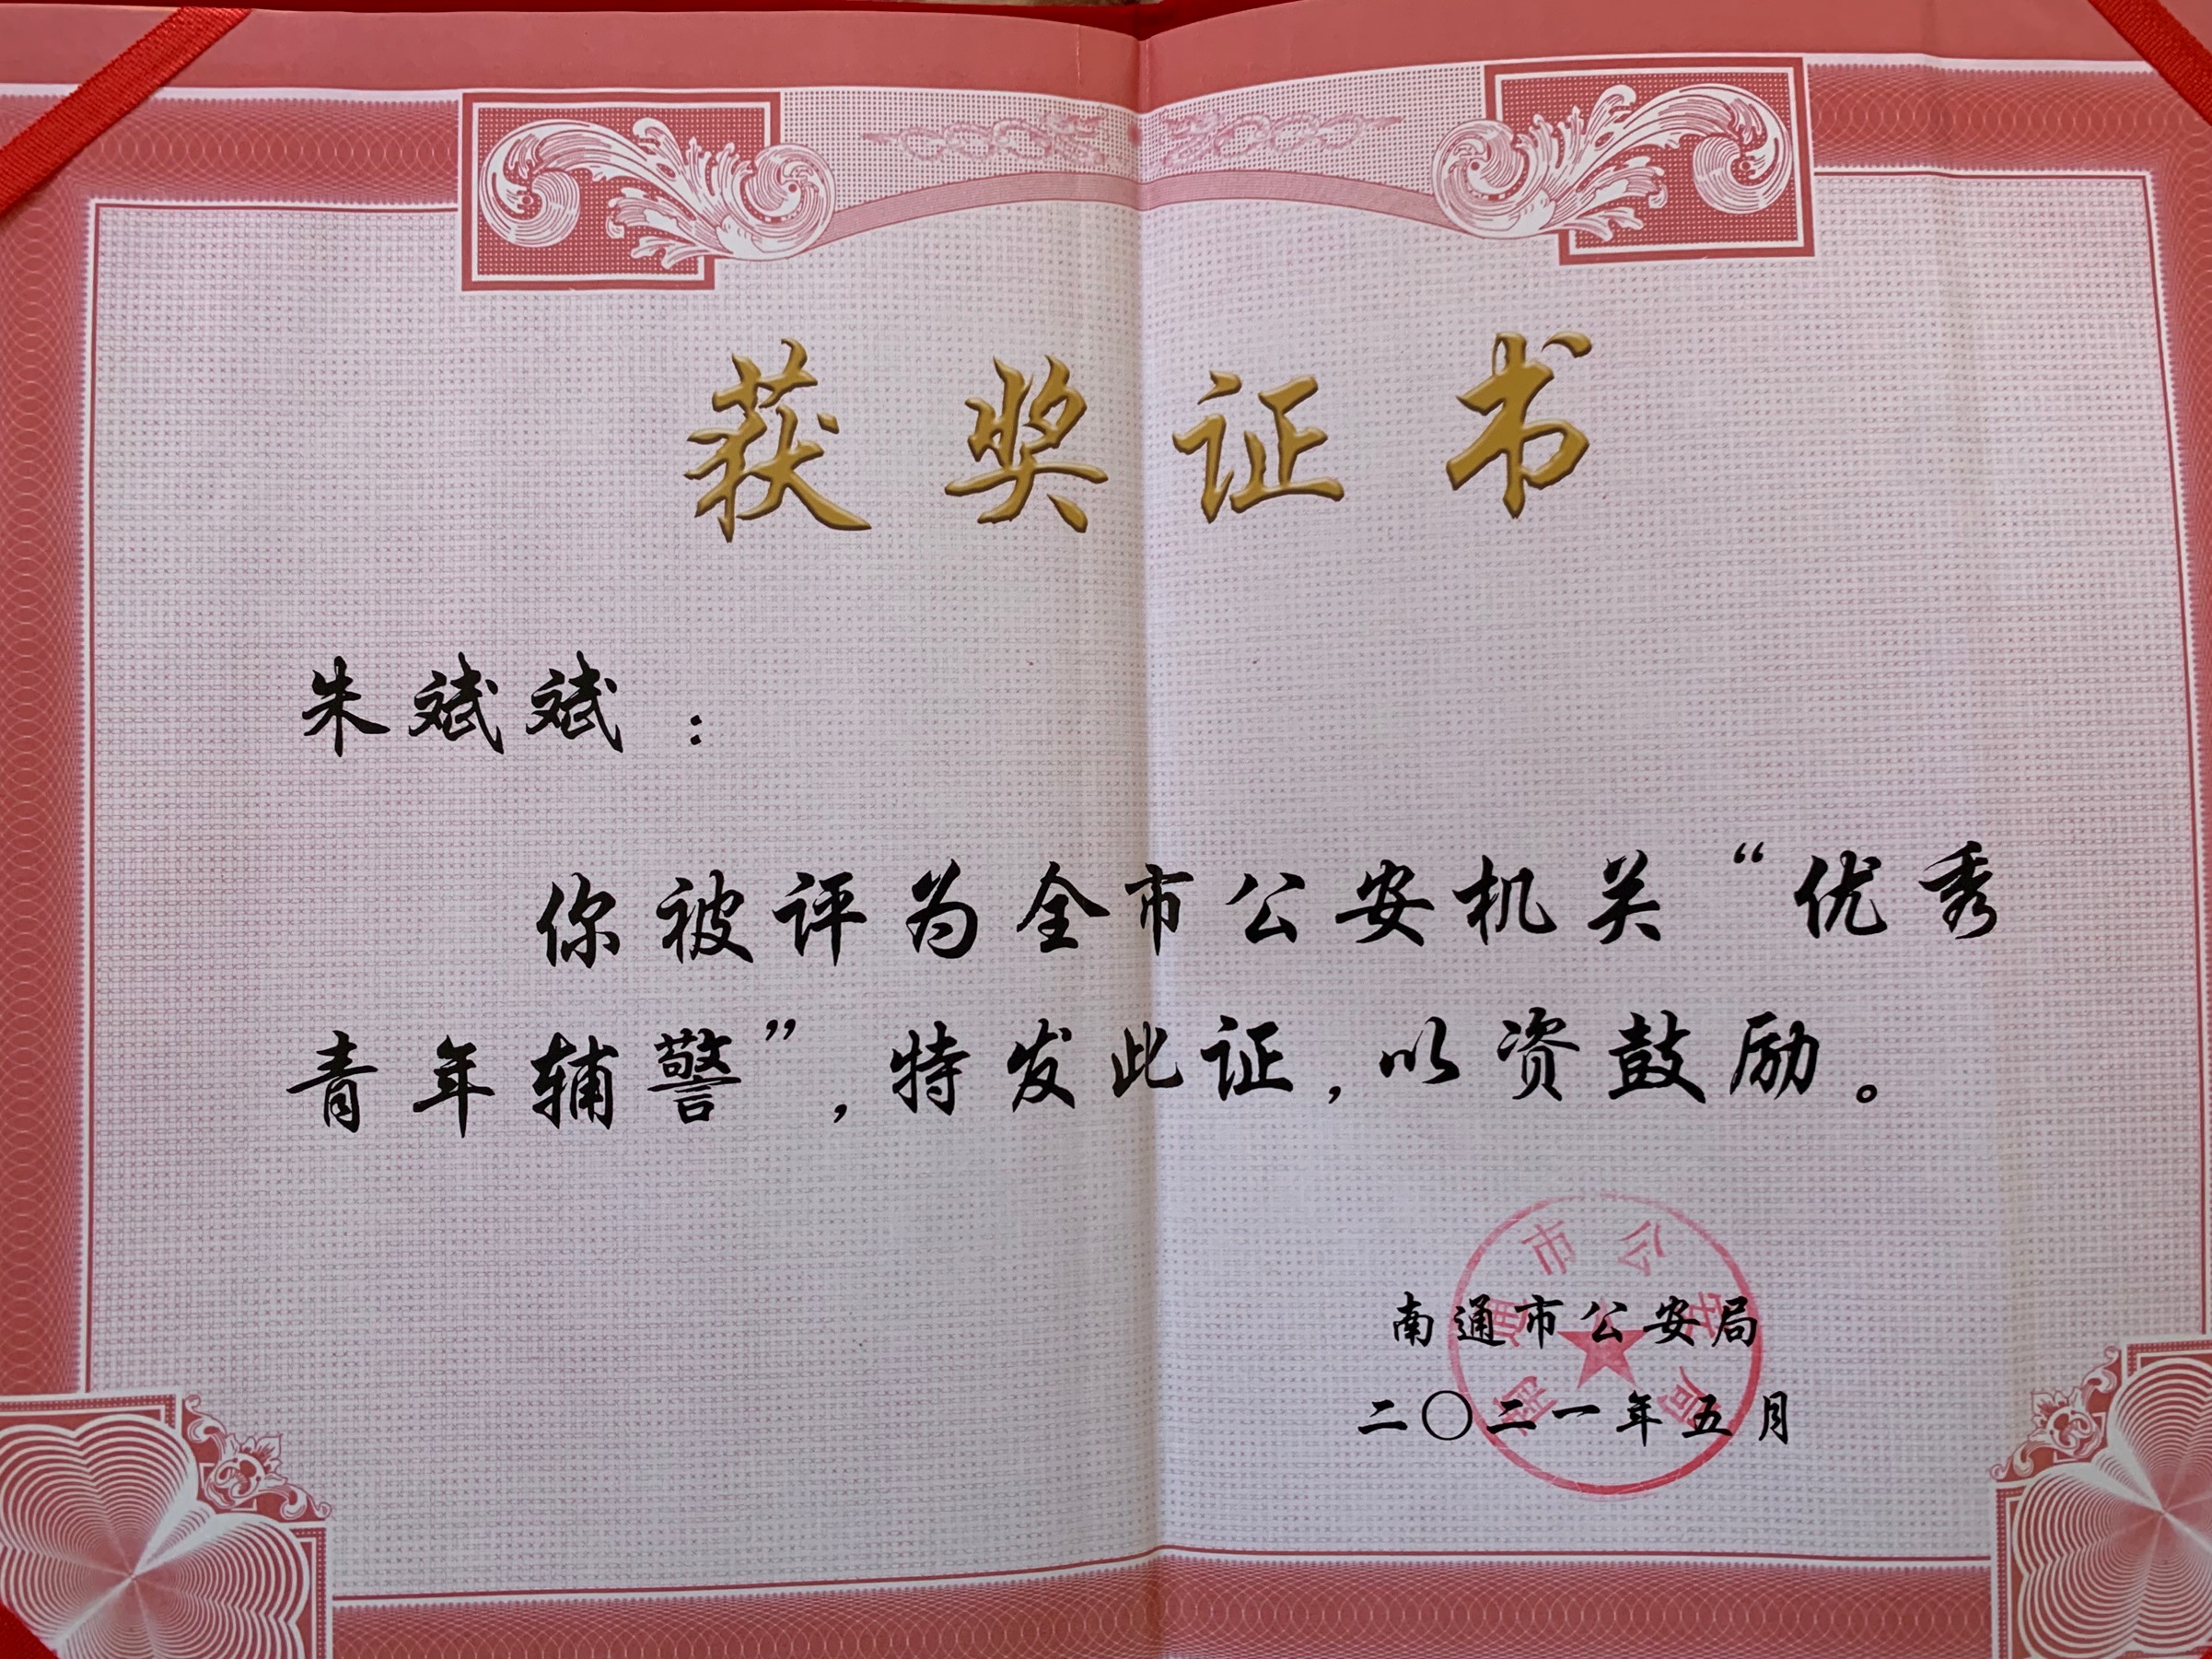 获奖证书
朱斌斌：
你被评为全市公安机关“优秀
青年辅警”，特发此证，以资鼓励。
南通市公安局
南通市公安局
二〇二一年五月